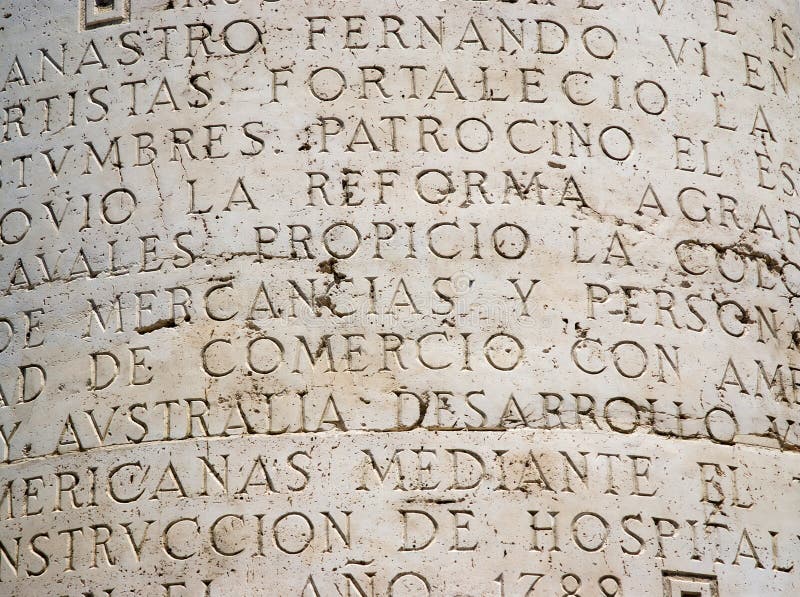 ANASTRO FERNANDO VI EN
RTISTAS. FORTALECIO LA
STVMBRES. PATROCINO EL ES
OVIO LA REFORMA AGRAR
AVALES. PROPICIO LA COLO
DE MERCANCIAS Y PERSONA
AD DE COMERCIO CON AME
Y AVSTRALIA. DESARROLLO V
MERICANAS MEDIANTE EL
NSTRVCCION DE HOSPITAL
EN EL AÑO 1788